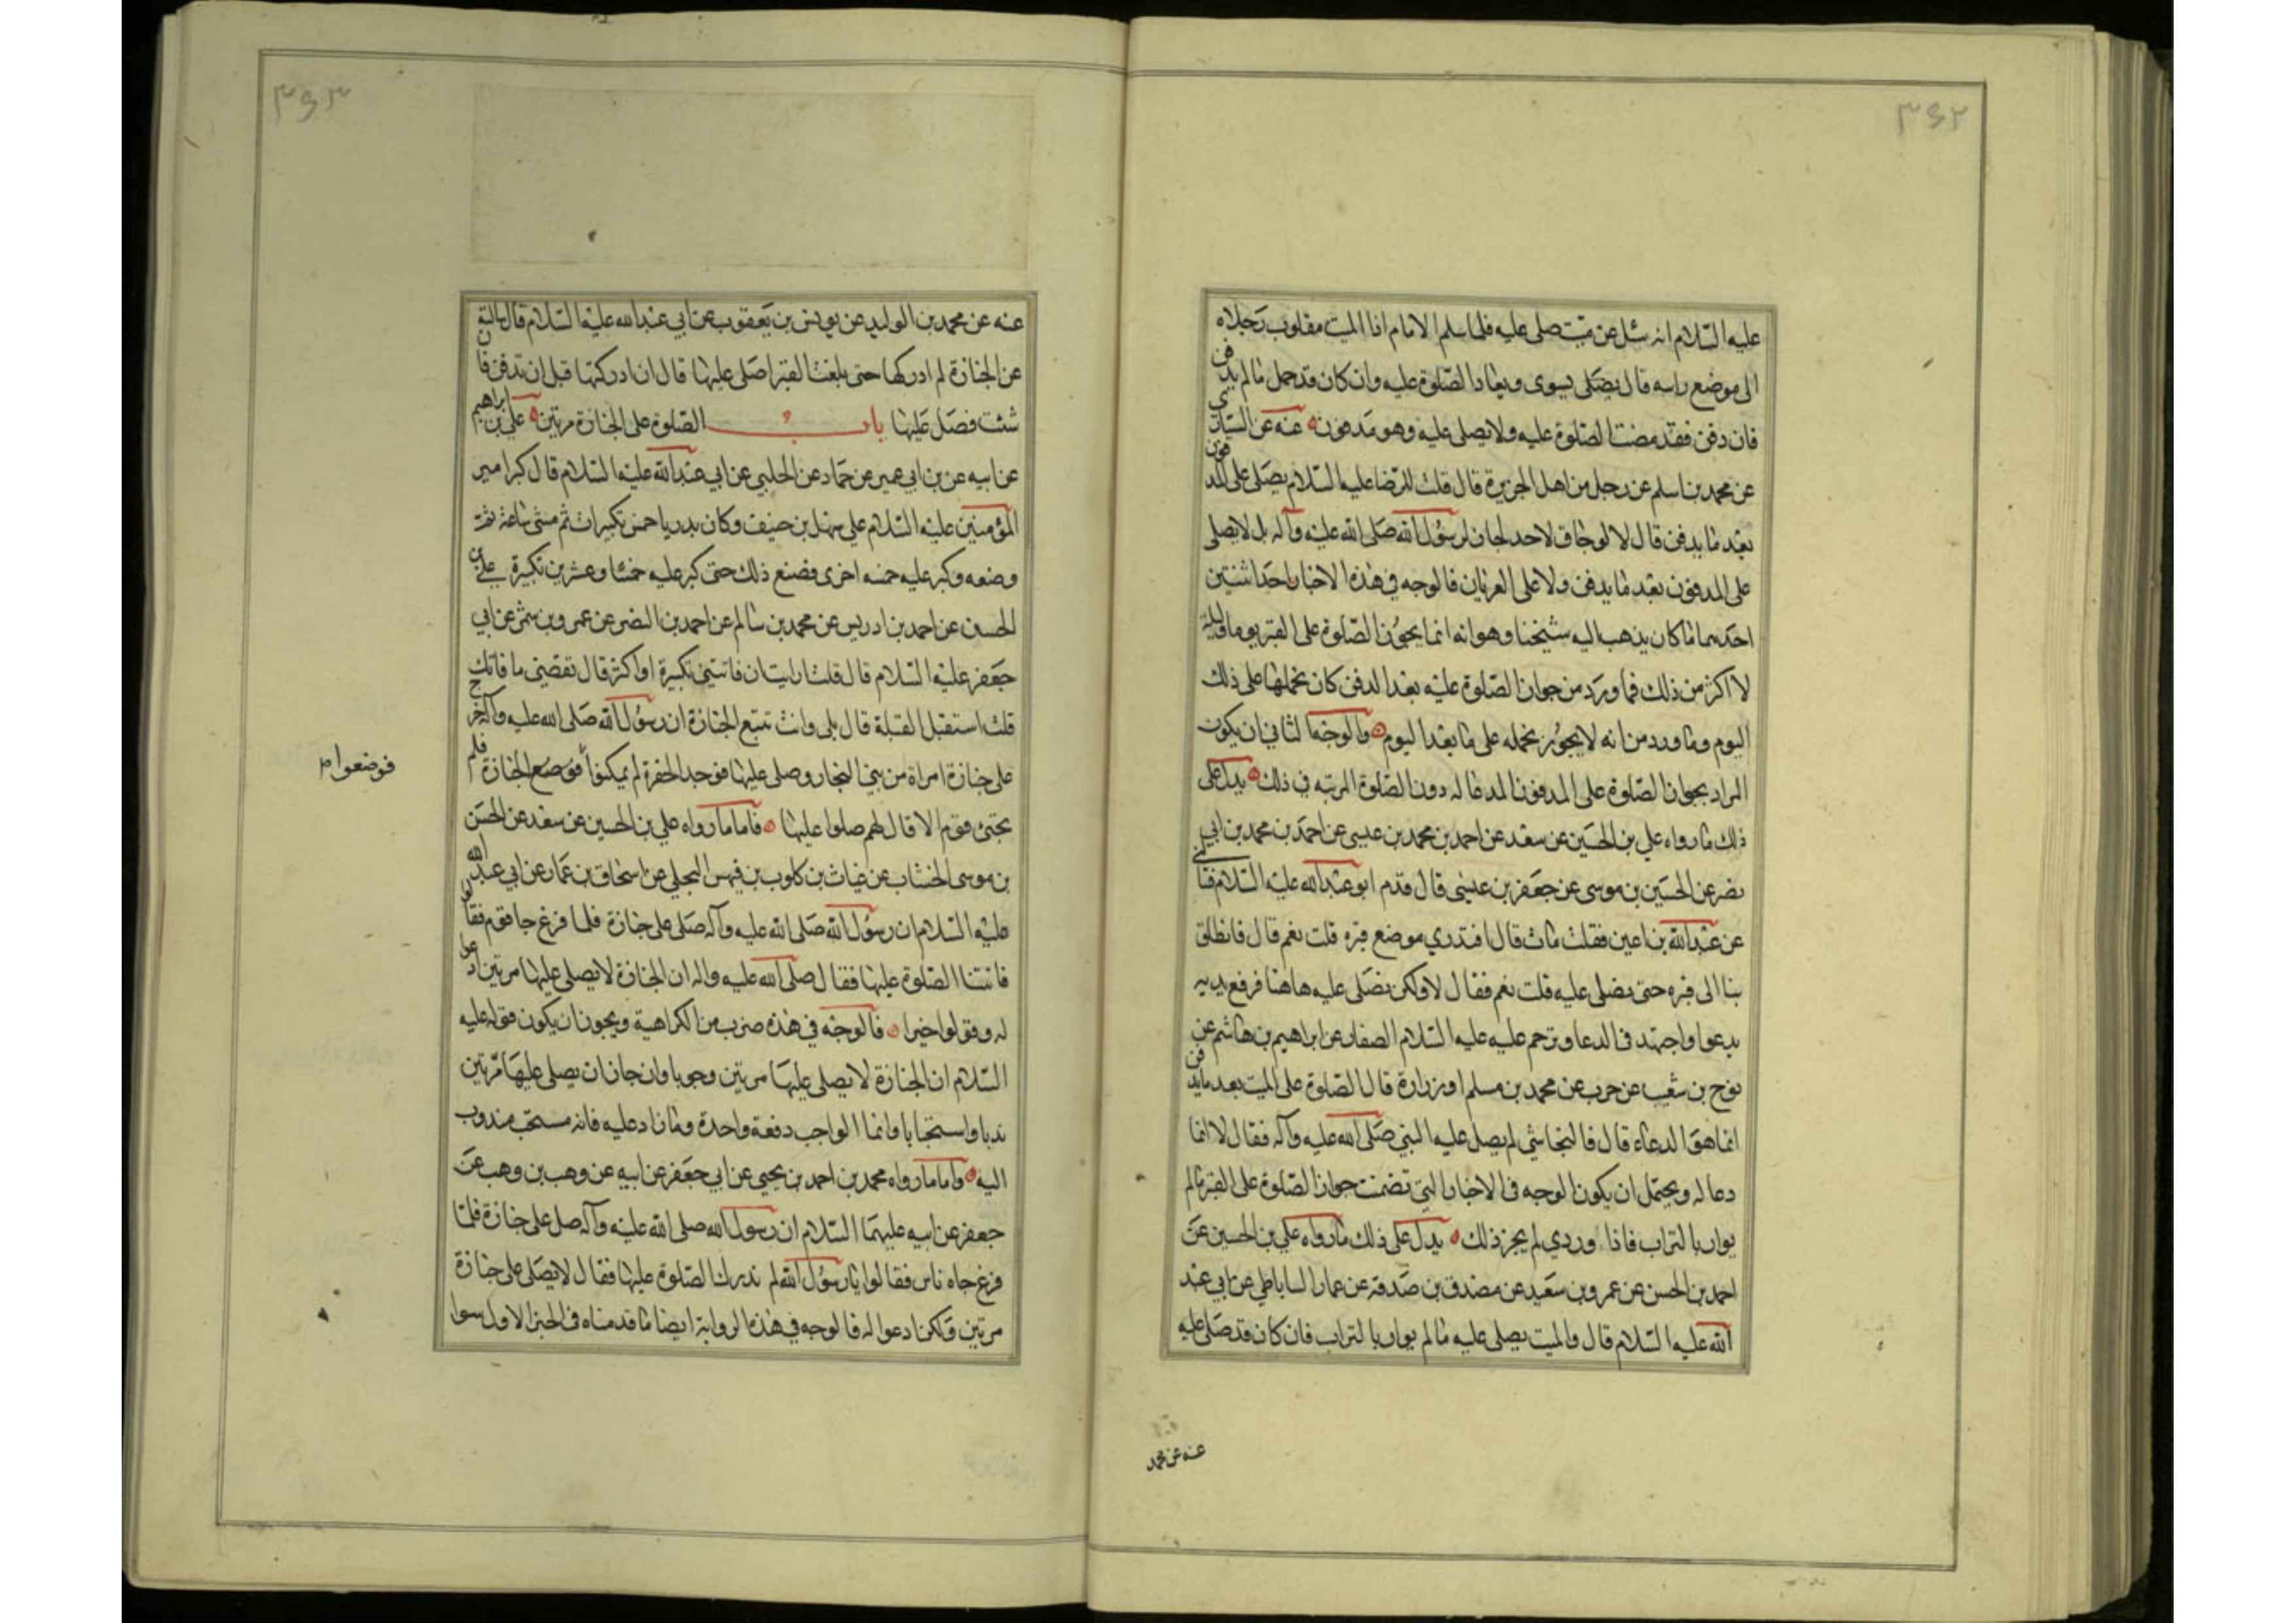 ۳۶۲
عليه السّلام انه سئل عن ميّت صلى عليه فلما سلم الامام اذا الميت مقلوب رجلاه
الى موضع راسه قال يصلى يسوى ويعاد الصّلوة عليه وان كان قد حمل ما لم يدفن
فان دفن فقد مضت الصّلوة عليه ولا يصلى عليه وهو مدفون عنه عن السيّاري
عن محمد بن اسلم عن رجل من اهل الجزيرة قال قلت للرّضا عليه السّلام يصلى على المدفون
بعد ما يدفن قال لا لو جاز لاحد لجاز لرسول الله صلى الله عليه وآله بل لا يصلى
على المدفون بعد ما يدفن ولا على العريان فالوجه في هذه الاخبار احد شئين
احدهما ما كان يذهب اليه شيخنا وهو انه انما يجوز الصّلوة على القبر يوما وليلة
لا اكثر من ذلك فما ورد من جواز الصّلوة عليه بعد الدفن كان نحملها على ذلك
اليوم وما ورد من انه لا يجوز نحمله على ما بعد اليوم والوجه الثاني ان يكون
المراد بجواز الصّلوة على المدفون الدعا له دون الصلوة المرتبه في ذلك يدل على
ذلك ما رواه علي بن الحسين عن سعد عن احمد بن محمد بن عيسى عن احمد بن محمد بن ابي
نصر عن الحسين بن موسى عن جعفر بن عيسى قال قدم ابو عبد الله عليه السّلام فسألني
عن عبد الله بن اعين فقلت مات قال افتدري موضع قبره قلت نعم قال فانطلق
بنا الى قبره حتى نصلى عليه قلت نعم فقال لا ولكن نصلى عليه هاهنا فرفع يديه
يدعوا واجتهد في الدعا وترحم عليه عليه السّلام الصفار عن ابراهيم بن هاشم عن
نوح بن شعيب عن حرب عن محمد بن مسلم او زرارة قال الصّلوة على الميت بعد ما يدفن
انما هو الدعاء قال فالنجاشي لم يصل عليه النبي صلى الله عليه وآله فقال لا انما
دعا له ويحتمل ان يكون الوجه في الاخبار التي تضمنت جواز الصّلوة على القبر ما لم
يوار بالتراب فاذا ووري لم يجز ذلك يدل على ذلك ما رواه علي بن الحسين عن
احمد بن الحسن عن عمرو بن سعيد عن مصدق بن صدقة عن عمار الساباطي عن ابي عبد
الله عليه السّلام قال والميت يصلى عليه ما لم يوار بالتراب فان كان قد صلى عليه
عنه عن محمد
۳۶۳
عنه عن محمد بن الوليد عن يونس بن يعقوب عن ابي عبد الله عليه السّلام قال سالته
عن الجنازة لم ادركها حتى بلغت القبر اصلى عليها قال ان ادركتها قبل ان تدفن فان
شئت فصل عليها باب الصّلوة على الجنازة مرتين علي بن ابراهيم
عن ابيه عن بن ابي عمير عن حماد عن الحلبي عن ابي عبد الله عليه السّلام قال كبر امير
المؤمنين عليه السّلام على سهل بن حنيف وكان بدريا خمس تكبيرات ثم مشى ساعة ثم
وضعه وكبر عليه خمسه اخرى فصنع ذلك حتى كبر عليه خمسا وعشرين تكبيرة علي بن
الحسين عن احمد بن ادريس عن محمد بن سالم عن احمد بن النضر عن عمرو بن شمر عن ابي
جعفر عليه السّلام قال قلت ارايت ان فاتتني تكبيرة او اكثر قال تقضي ما فاتك
قلت استقبل القبلة قال بلى وانت تتبع الجنازة ان رسول الله صلى الله عليه وآله خرج
على جنازة امراة من بني النجار وصلى عليها فوجد الحفرة لم يمكنوا فوضع الجنازة فلم
فوضعوا م
يجئ قوم الا قال لهم صلوا عليها فاما ما رواه علي بن الحسين عن سعد عن الحسن
بن موسى الخشاب عن غياث بن كلوب بن فيهس البجلي عن اسحاق بن عمار عن ابي عبد الله
عليه السّلام ان رسول الله صلى الله عليه وآله صلى على جنازة فلما فرغ جا قوم فقالوا
فاتتنا الصّلوة عليها فقال صلى الله عليه واله ان الجنازة لا يصلى عليها مرتين ادعوا
له وقولوا خيرا فالوجه في هذه ضرب من الكراهية ويجوز ان يكون قوله عليه
السّلام ان الجنازة لا يصلى عليها مرتين وجوبا وان جاز ان يصلى عليها مرّتين
ندبا واستحبابا وانما الواجب دفعة واحدة وما زاد عليه فانه مستحب مندوب
اليه واما ما رواه محمد بن احمد بن يحيى عن ابي جعفر عن ابيه عن وهب بن وهب عن
جعفر عن ابيه عليهما السّلام ان رسول الله صلى الله عليه وآله صلى على جنازة فلما
فرغ جاه ناس فقالوا يا رسول الله لم ندرك الصّلوة عليها فقال لا يصلى على جنازة
مرتين ولكن ادعوا له فالوجه في هذه الرواية ايضا ما قدمناه في الخبر الاول سوا